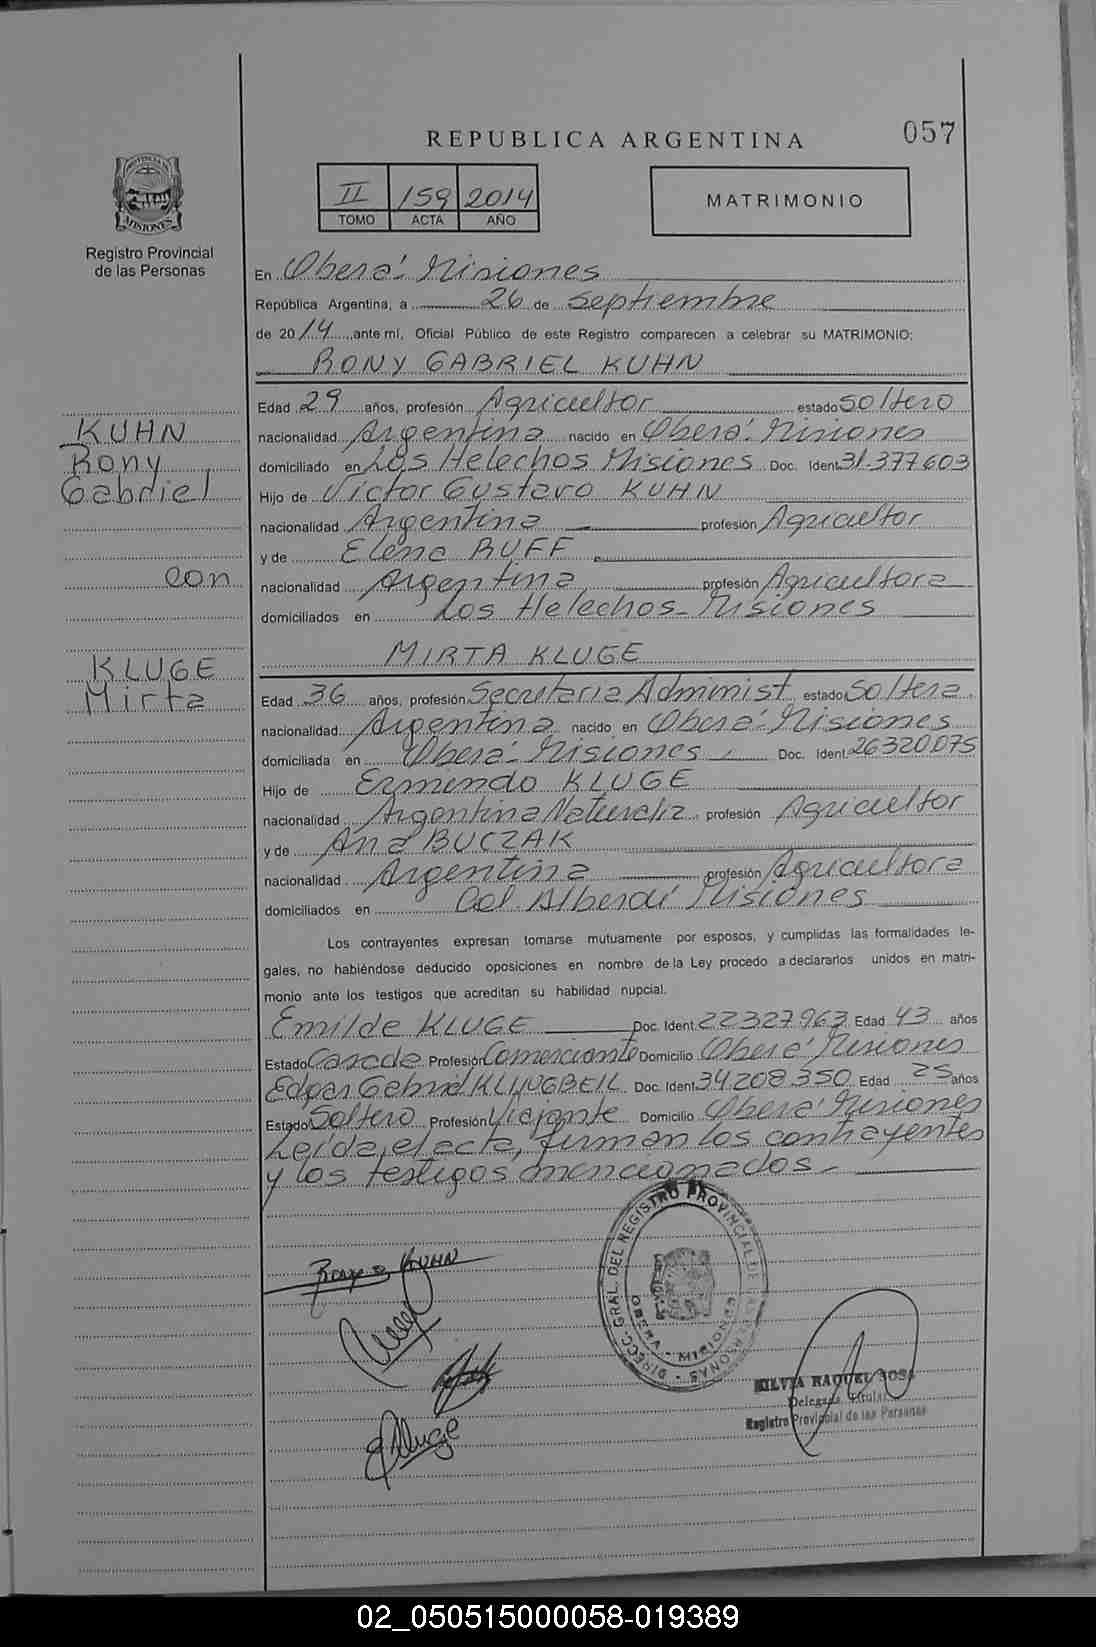 057
REPUBLICA ARGENTINA
PROVINCIA DE
MISIONES
Registro Provincial
de las Personas
II 159 2014
TOMO ACTA AÑO
MATRIMONIO
En Oberá- Misiones
República Argentina, a 26 de Septiembre
de 2014, ante mí, Oficial Público de este Registro comparecen a celebrar su MATRIMONIO:
RONY GABRIEL KUHN
Edad 29 años, profesión Agricultor estado soltero
KUHN
nacionalidad Argentina nacido en Oberá- Misiones
Rony
domiciliado en Los Helechos Misiones Doc. Ident. 31.377.603
Gabriel
Hijo de Victor Gustavo KUHN
nacionalidad Argentina profesión Agricultor
y de Elena RUFF
con
nacionalidad Argentina profesión Agricultora
domiciliados en Los Helechos- Misiones
MIRTA KLUGE
KLUGE
Mirta
Edad 36 años, profesión Secretaria Administ. estado Soltera
nacionalidad Argentina nacido en Oberá- Misiones
domiciliada en Oberá- Misiones Doc. Ident. 26320.075
Hijo de Ermindo KLUGE
nacionalidad Argentina Naturaliz. profesión Agricultor
y de Ana BUCZAK
nacionalidad Argentina profesión Agricultora
domiciliados en Col Alberdi Misiones
Los contrayentes expresan tomarse mutuamente por esposos, y cumplidas las formalidades le-
gales, no habiéndose deducido oposiciones en nombre de la Ley procedo a declararlos unidos en matri-
monio ante los testigos que acreditan su habilidad nupcial.
Emilde KLUGE Doc. Ident. 22327963 Edad 43 años
Estado Casada Profesión Comerciante Domicilio Oberá Misiones
Edgar Gabriel KLINGBEIL Doc. Ident. 34208350 Edad 25 años
Estado Soltero Profesión Viajante Domicilio Oberá Misiones
Leída el acta, firman los contrayentes
y los testigos mencionados-
Rony G. KUHN
DIRECC. GRAL. DEL REGISTRO PROVINCIAL DE LAS PERSONAS
OBERA - MISIONES
EKluge
SILVIA RAQUEL SOSA
Delegada Titular
Registro Provincial de las Personas
02_050515000058-019389